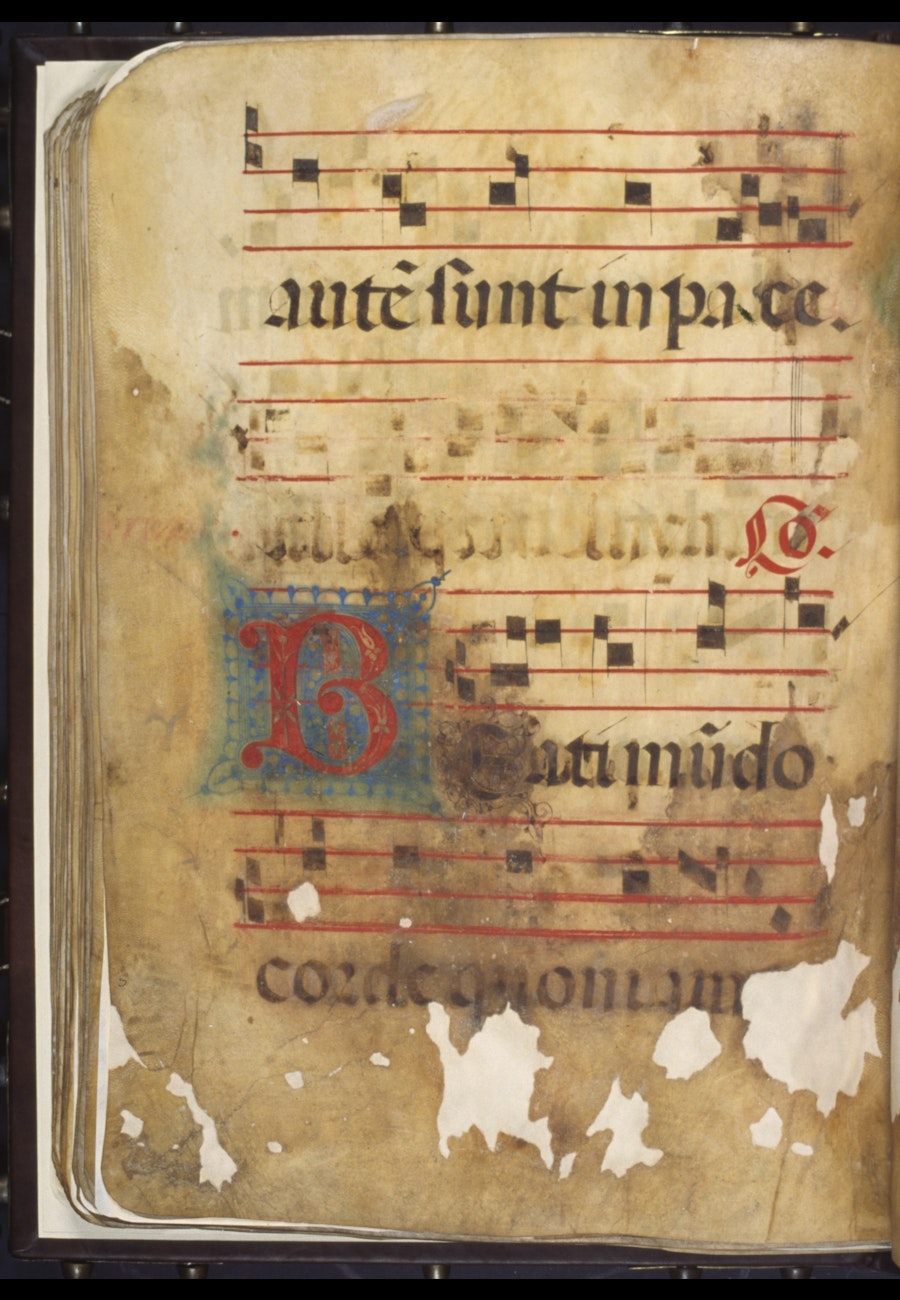 autē sunt in pace.
Co.
Beati mūdo
corde quoniam